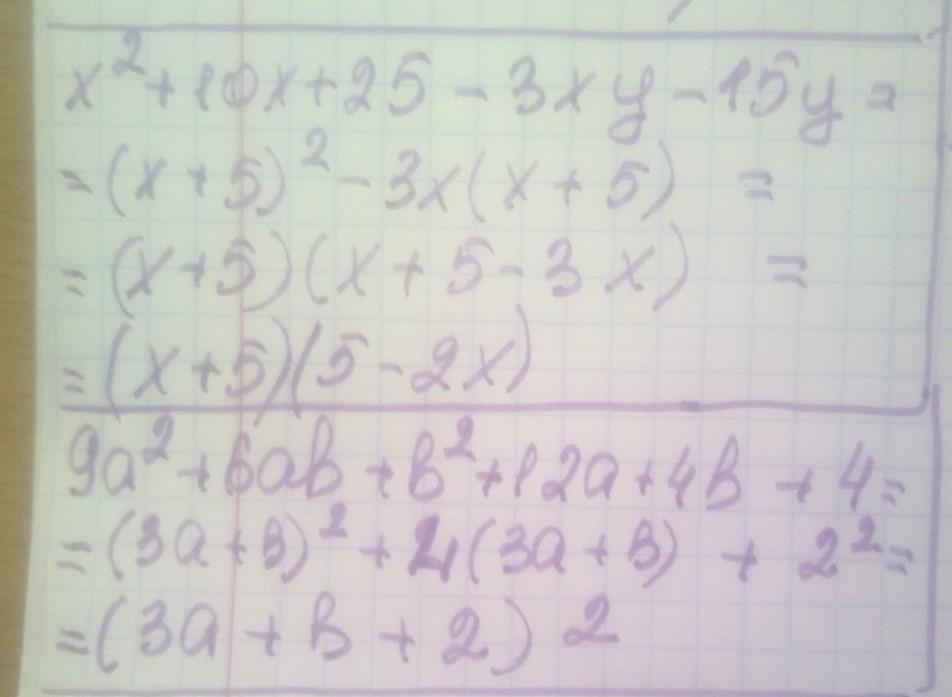 x² + 10x + 25 - 3xy - 15y =
= (x + 5)² - 3x(x + 5) =
= (x + 5)(x + 5 - 3x) =
= (x + 5)(5 - 2x)
9a² + 6ab + b² + 12a + 4b + 4 =
= (3a + b)² + 4(3a + b) + 2² =
= (3a + b + 2)²